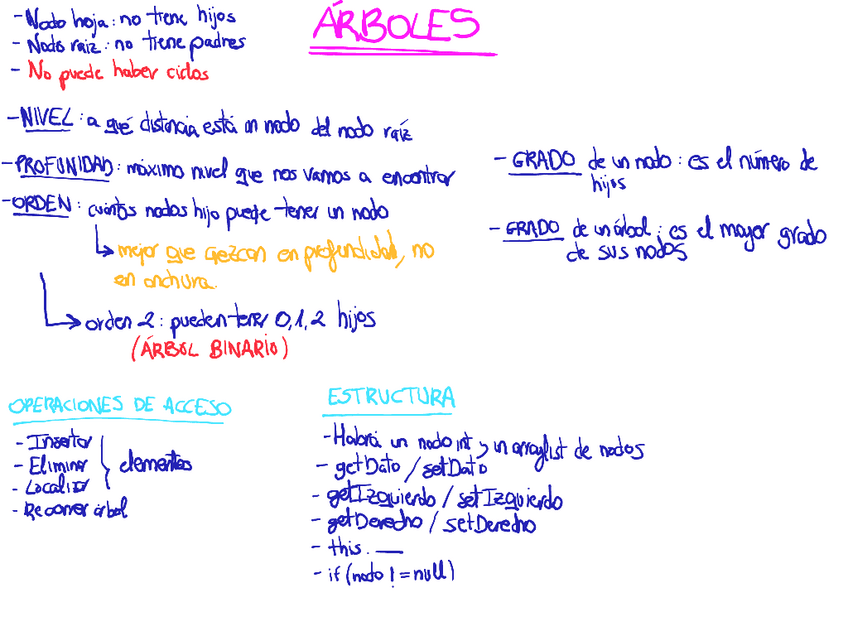 ÁRBOLES
- Nodo hoja: no tiene hijos
- Nodo raiz: no tiene padres
- No puede haber ciclos
- NIVEL: a qué distancia está un nodo del nodo raíz
- PROFUNIDAD: máximo nivel que nos vamos a encontrar
- ORDEN: cuántos nodos hijo puede tener un nodo
mejor que crezcan en profundidad, no
en anchura.
orden 2: pueden tener 0,1,2 hijos
(ÁRBOL BINARIO)
- GRADO de un nodo: es el número de
hijos
- GRADO de un árbol: es el mayor grado
de sus nodos
OPERACIONES DE ACCESO
- Insertar
- Eliminar
- Localizar
elementos
- Recorrer árbol
ESTRUCTURA
- Habrá un nodo int y un arraylist de nodos
- getDato / setDato
- getIzquierdo / setIzquierdo
- getDerecho / setDerecho
- this. __
- if (nodo != null)